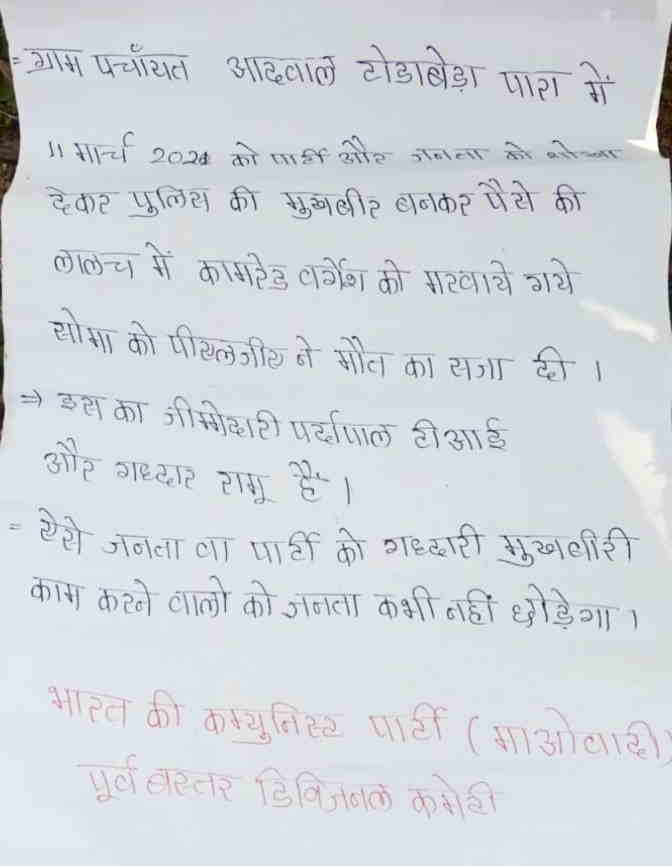 = ग्राम पचाँयत आदवाल टोडाबेड़ा पारा में
11 मार्च 2024 को पार्टी और जनता को धोखा
देकर पुलिस की मुखबीर बनकर पैसे की
लालच में कामरेड वर्गेश को मरवाये गये
सोमा को पीएलजीए ने मौत का सजा दी ।
⇒ इस का जीम्मेदारी पर्दापाल टीआई
और गध्दार रामू हैं ।
= ऐसे जनता वा पार्टी को गध्दारी मुखबीरी
काम करने वालो को जनता कभी नहीं छोड़ेगा ।
भारत की कम्युनिस्ट पार्टी (माओवादी)
पूर्व बस्तर डिविजनल कमेटी